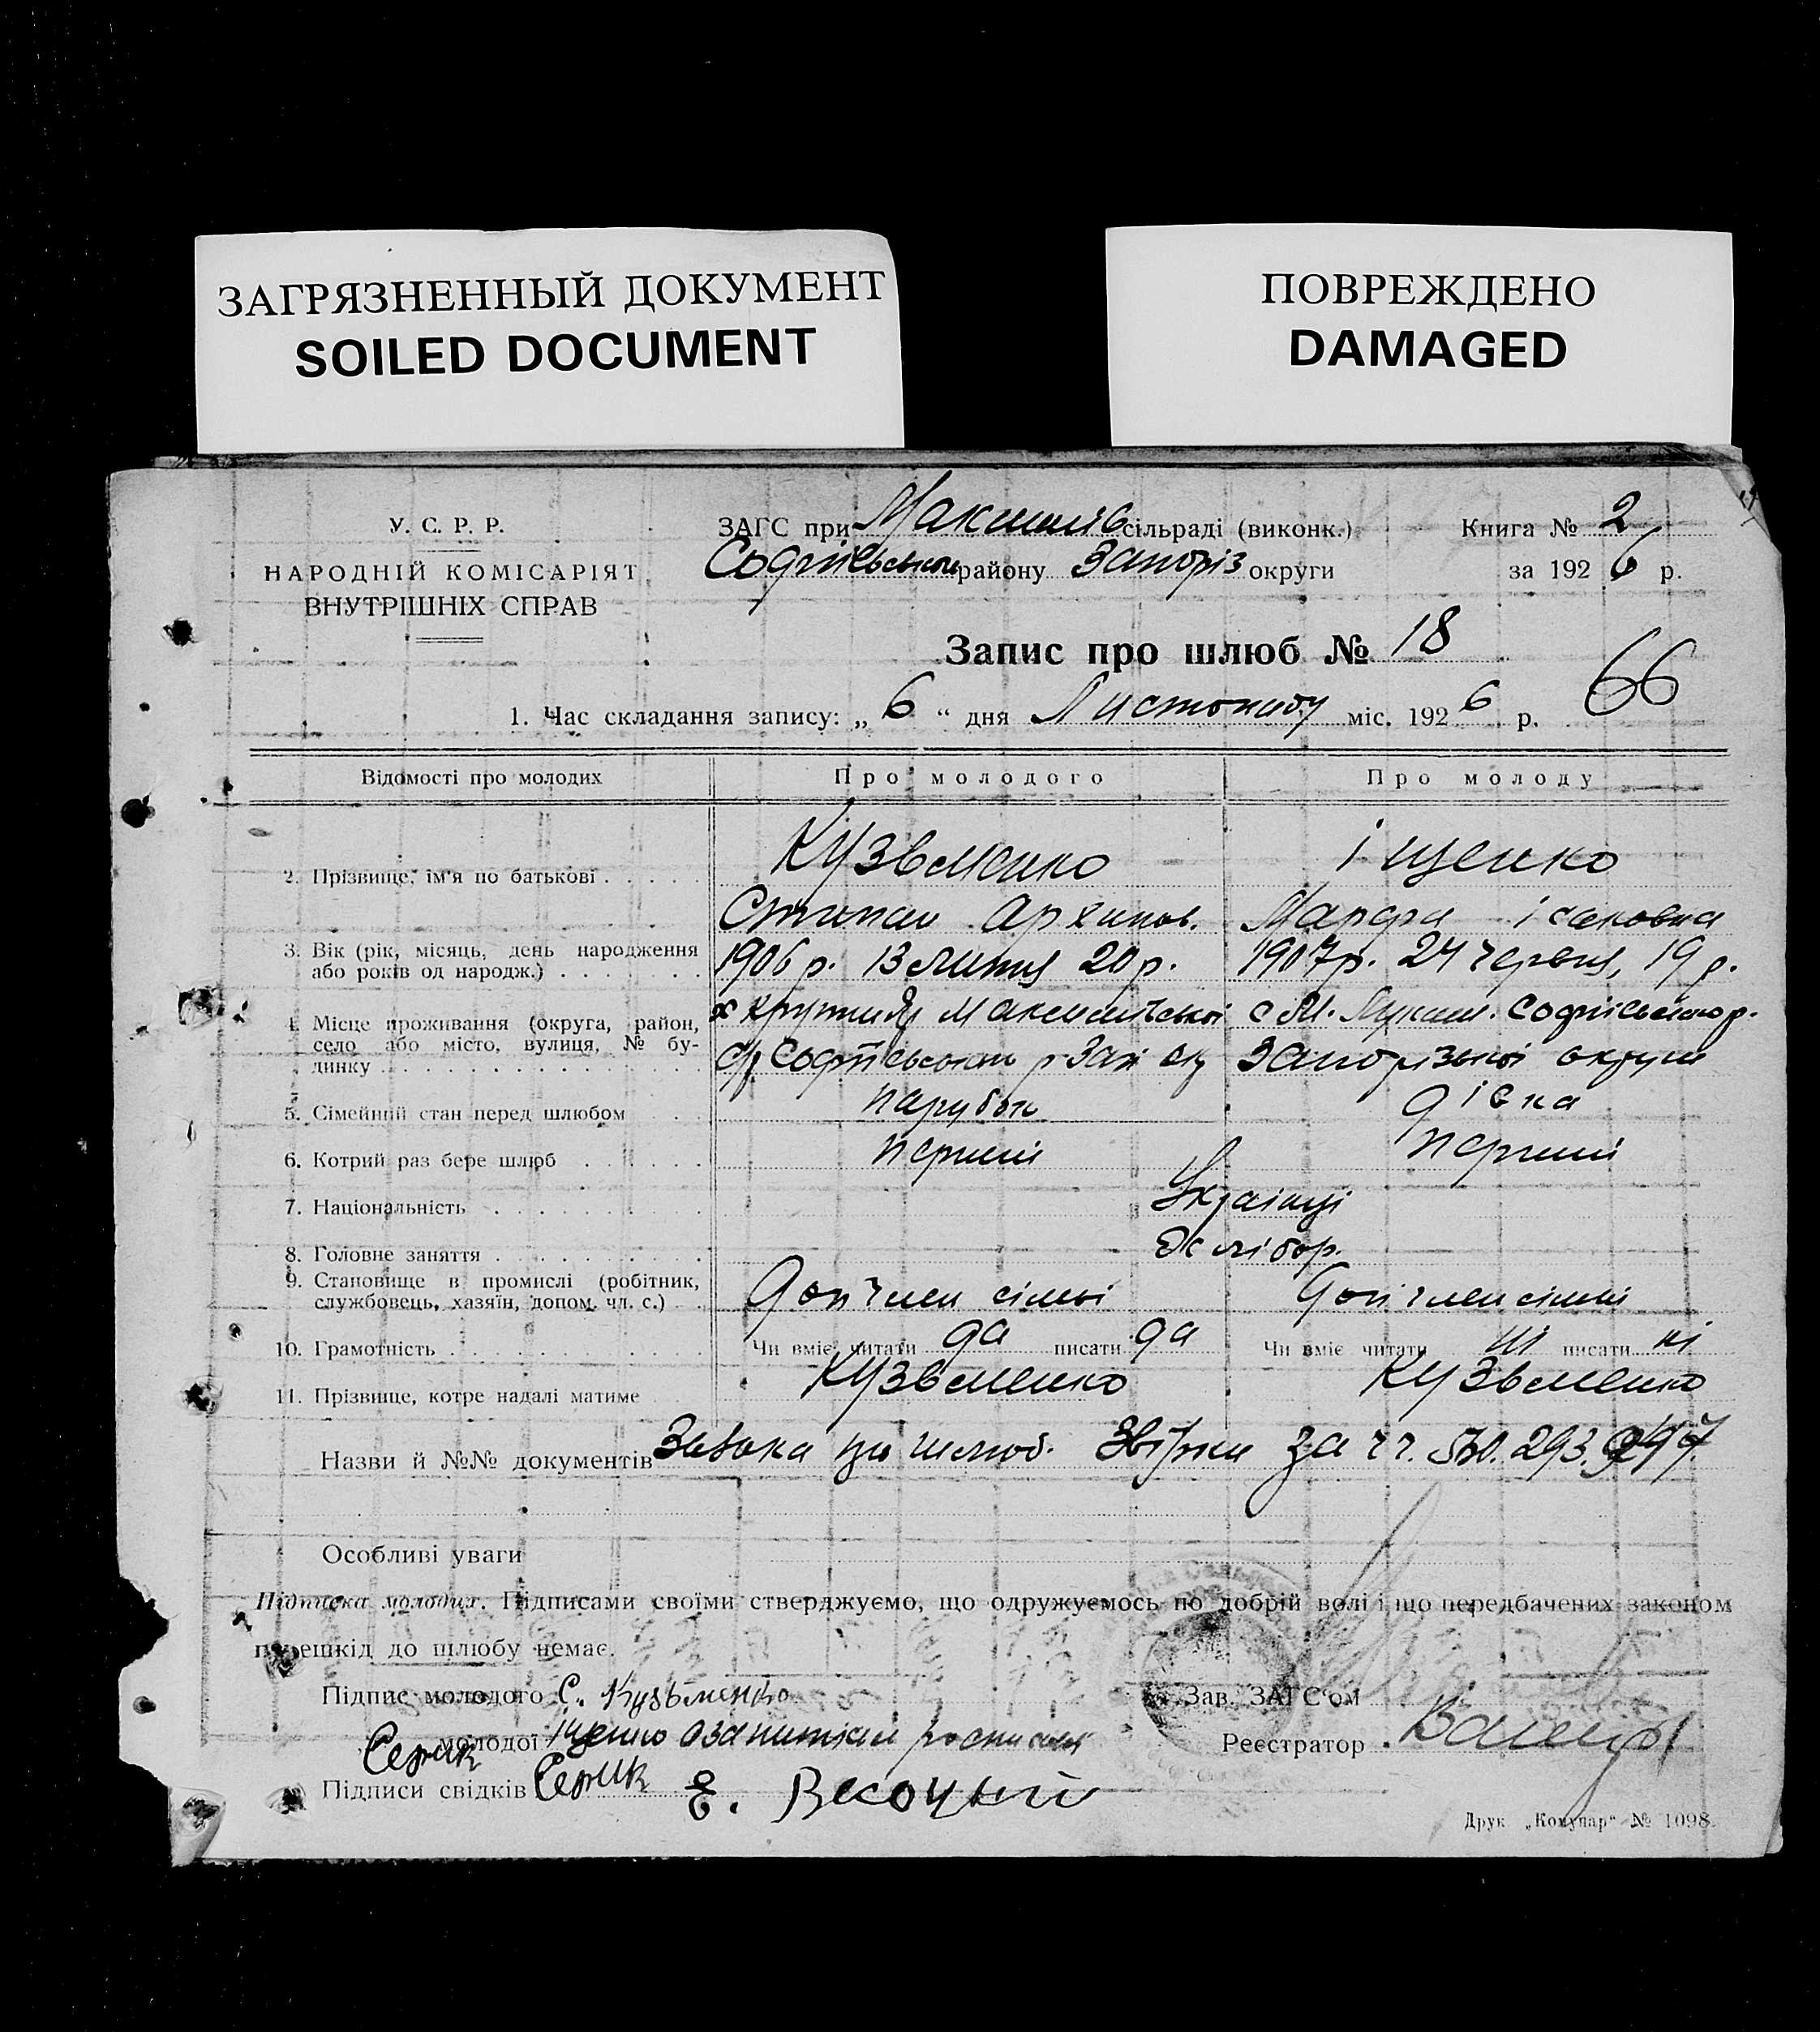 ЗАГРЯЗНЕННЫЙ ДОКУМЕНТ
SOILED DOCUMENT
ПОВРЕЖДЕНО
DAMAGED
У. С. Р. Р.
НАРОДНІЙ КОМІСАРІЯТ
ВНУТРІШНІХ СПРАВ
ЗАГС при Максимів сільраді (виконк.)
Софіївського району Запоріз округи
Книга № 2
за 1926 р.
Запис про шлюб № 18
66
1. Час складання запису: „ 6 “ дня Листопаду міс. 1926 р.
Відомості про молодих
Про молодого
Про молоду
2. Прізвище, ім'я по батькові
Кузьменко
Степан Архипов.
Іщенко
Марфа Ісаковна
3. Вік (рік, місяць, день народження
або років од народж.)
1906 р. 13 липня 20 р.
1907р. 24 червня, 19 р.
4. Місце проживання (округа, район,
село або місто, вулиця, № бу-
динку
с/р Софіївського р Зап ок
Софіївського р.
Запорізької округи
5. Сімейний стан перед шлюбом
парубок
дівка
6. Котрий раз бере шлюб
перший
перший
7. Національність
Українці
8. Головне заняття
9. Становище в промислі (робітник,
службовець, хазяїн, допом. чл. с.)
доп член сімьі
доп член сімьі
10. Грамотність
Чи вміє читати да писати да
Чи вміє читати ні писати ні
11. Прізвище, котре надалі матиме
Кузьменко
Кузьменко
Назви й №№ документів Заява про шлюб. за чч. 293.
Особливі уваги
Підписка молодих. Підписами своїми стверджуємо, що одружуємось по добрій волі і що передбачених законом
перешкід до шлюбу немає.
Підпис молодого С. Кузьменко
молодої Іщенко
Зав. ЗАГС'ом
Реєстратор
Підписи свідків
Друк. „Комунар“ № 1098.